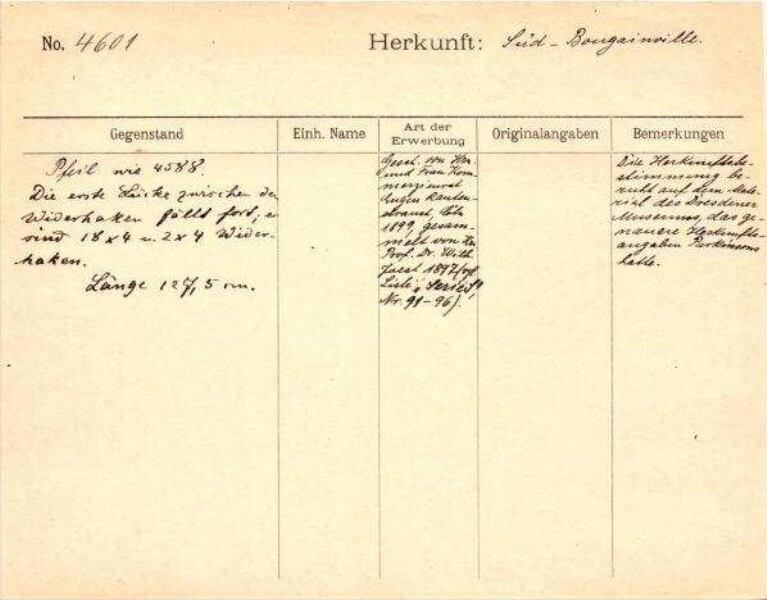 No. 4601 Herkunft: Süd-Bougainville.
Gegenstand
Einh. Name
Art der
Erwerbung
Originalangaben
Bemerkungen
Pfeil wie 4588.
Die erste Lücke zwischen den
Widerhaken fällt fort; es
sind 18 x 4 u. 2 x 4 Wider-
haken.
Länge 127,5 cm.
Gesch. von Hn.
und Frau Kom-
merzienrat
Eugen Rauten-
strauch, Cöln
1899, gesam-
melt von Hn.
Prof. Dr. Wilh.
Joest 1897 (vgl.
Liste
Nr. 91-96).
Die Herkunftsbe-
stimmung be-
ruht auf dem Mate-
rial des Dresdener
Museums, das ge-
nauere Herkunfts-
angaben Parkinsons
hatte.